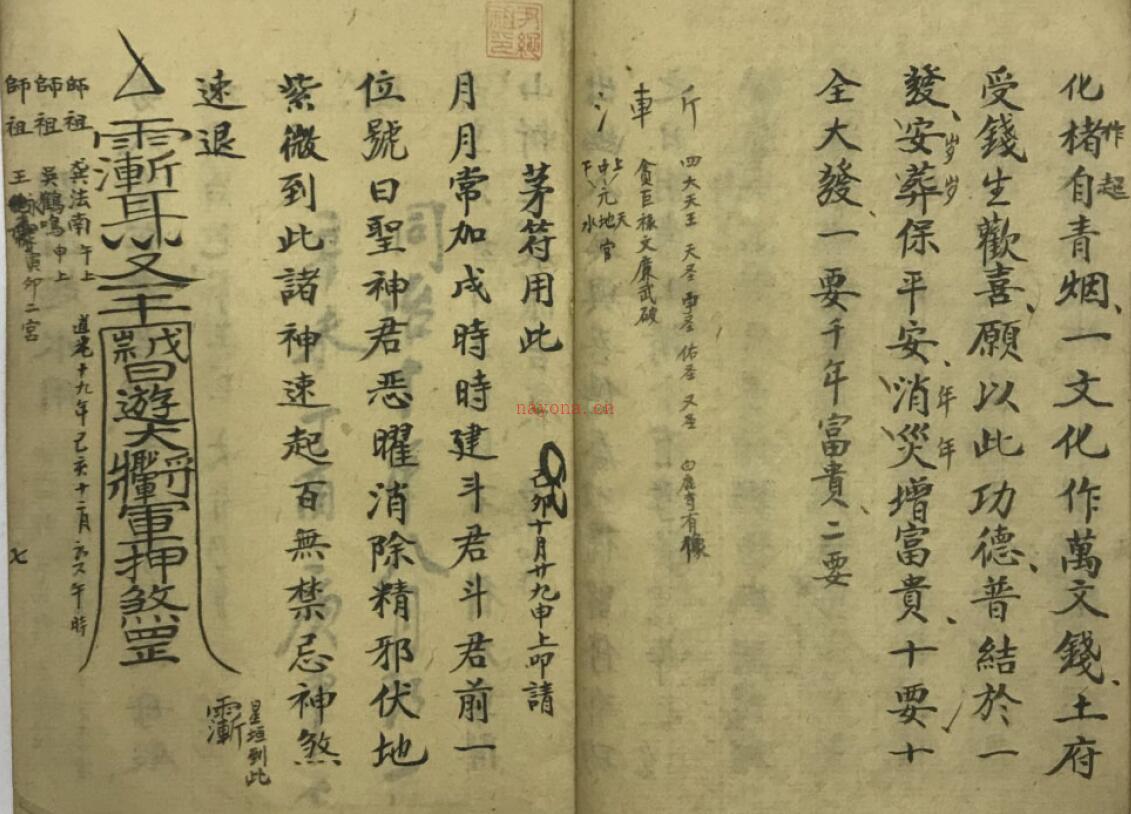 化楮自青烟、一文化作萬文錢、土府
作起
受錢生歡喜、願以此功德、普結於一
發、安葬保平安、消災增富貴、十要十
岁岁
年年
全大發、一要千年富貴、二要
斤 四大天王 天圣
車 貪巨禄文廉武破
上中下元天地水官
茅符用此
十月廿九申上卯請
月月常加戌時時建斗君斗君前一
位號曰聖神君恶曜消除精邪伏地
紫微到此諸神速起百無禁忌神煞
速退
日遊大將軍押煞罡
星垣到此
師祖 法南 午上
師祖 吳鶴鳴 申上
師祖 王 寅卯二宮
道光十九年己亥十二月 午時
nayona.cn